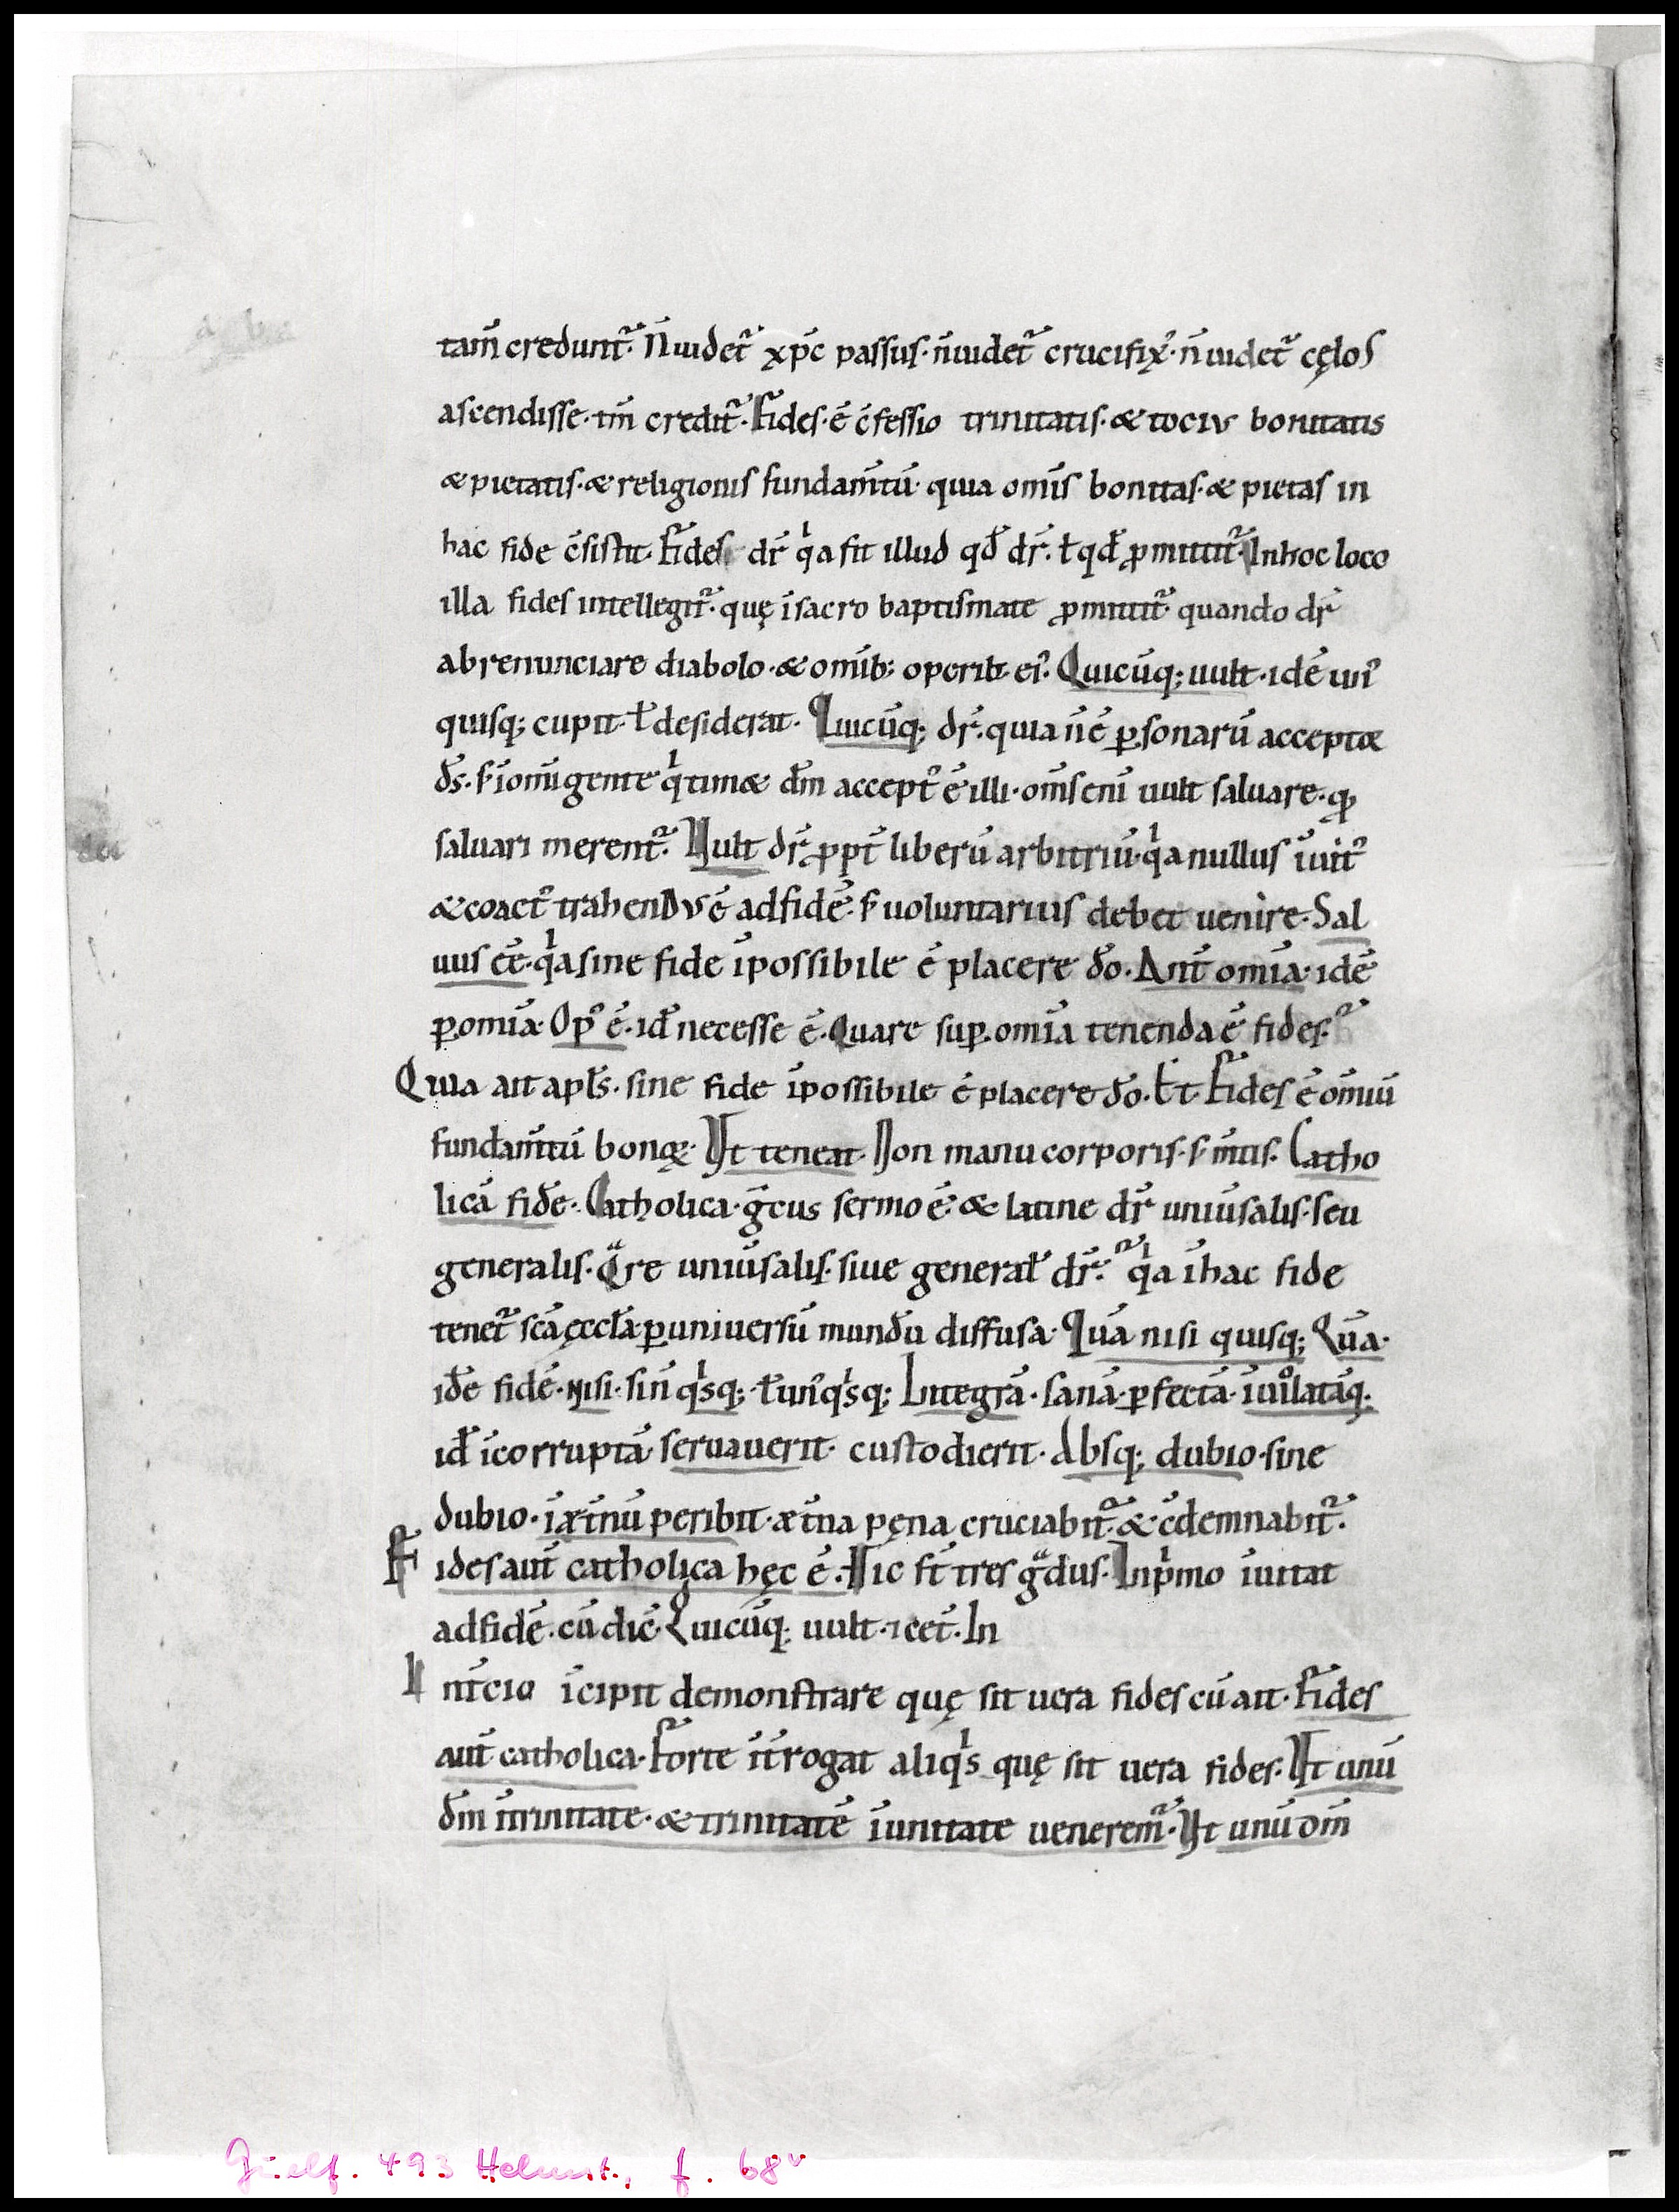 tam̄ credunt᷑. N̄ uidet᷑ xp̄c passus. n̄ uidet᷑ crucifix᷒. n̄ uidet᷑ cęlos
ascendisse. tm̄ credit᷑. Fides. ē c̄fessio trinitatis. & tociꝰ bonitatis
& pietatis. & religionis fundam̄tū. quia om̄is bonitas. & pietas in
hac fide c̄sistit. Fides dr̄ qͥa fit illud qđ dr̄. ł qđ ꝓmittit᷑. In hoc loco
illa fides intellegit᷑. quę ī sacro baptismate ꝓmittit᷑ quando dr̄
abrenunciare diabolo. & om̄ib; operib; eiꝰ. Quicūq; uult. id ē uñ
quisq; cupit. ł desiderat. Quicūq; dr̄. quia n̄ ē ꝑsonarū acceptor
ds̄. s; ī om̄i gente qͥ timet dm̄ acceptꝰ ē illi. om̄s eni uult saluare. qͥ
saluari merent᷑. Uult dr̄ ꝓpt̄ liberū arbitriū. qͥa nullus īuitꝰ
& coactꝰ trahendꝰ ē ad fidē. s; uoluntarius debet uenire. Sal
uus eē. qͥa sine fide īpossibile ē placere do̅. Ant̄ om̄ia. id ē
ꝑ om̄ia. Opꝰ ē. id̄ necesse ē. Quare suꝑ om̄ia tenenda ē fides.
Quia ait apl̄s. sine fide īpossibile ē placere do̅. Et Fides ē om̄iū
fundam̄tū bonoꝝ. Ut teneat. Non manu corporis. s; m̄tis. Catho
licā fidē. Catholica. gͣcus sermo ē. & latine dr̄ uniūsalis. seu
generalis. Qͣre uniūsalis. siue general̄ dr̄. qͥa ī hac fide
tenet᷑ scā ęccłia ꝑ uniuersū mundū diffusa. Quā nisi quisq; Quā.
id ē fidē. nisi. sin̄ qͥsq; ł un̄qͥsq; Integrā. sanā. ꝑfectā. īuiͦlatāq;
id̄ īcorruptā seruauerit. custodierit. Absq; dubio. sine
dubio. ī ęt̄nū peribit. ęt̄na pęna cruciabit᷑. & c̄demnabit᷑.
Fides aut̄ catholica hęc ē. Hic st̄ tres gͣdus. In pͥmo īuitat
ad fidē. cū dic̄. Quicūq; uult. ⁊ cet̄. In
In it̄cio īcipit demonstrare quę sit uera fides cū ait. Fides
aut̄ catholica. Forte īt̄rogat aliqͥs quę sit uera fides. Ut unū
dm̄ ī trinitate. & trinitatē ī unitate venerem᷑. Ut unū dm̄
Guelf. 493 Helmst., f. 68v